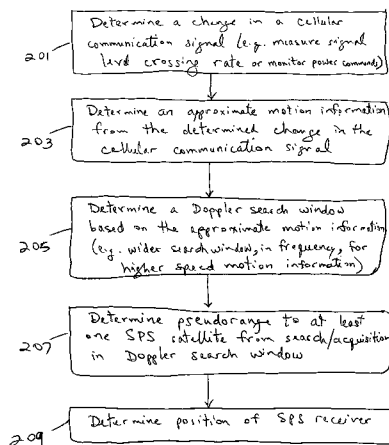 201
Determine a change in a cellular
communication signal (e.g. measure signal
level crossing rate or monitor power commands)
203
Determine an approximate motion information
from the determined change in the
cellular communication signal
205
Determine a Doppler search window
based on the approximate motion information
(e.g. wider search window, in frequency, for
higher speed motion information)
207
Determine pseudorange to at least
one SPS satellite from search/acquisition
in Doppler search window
209
Determine position of SPS receiver